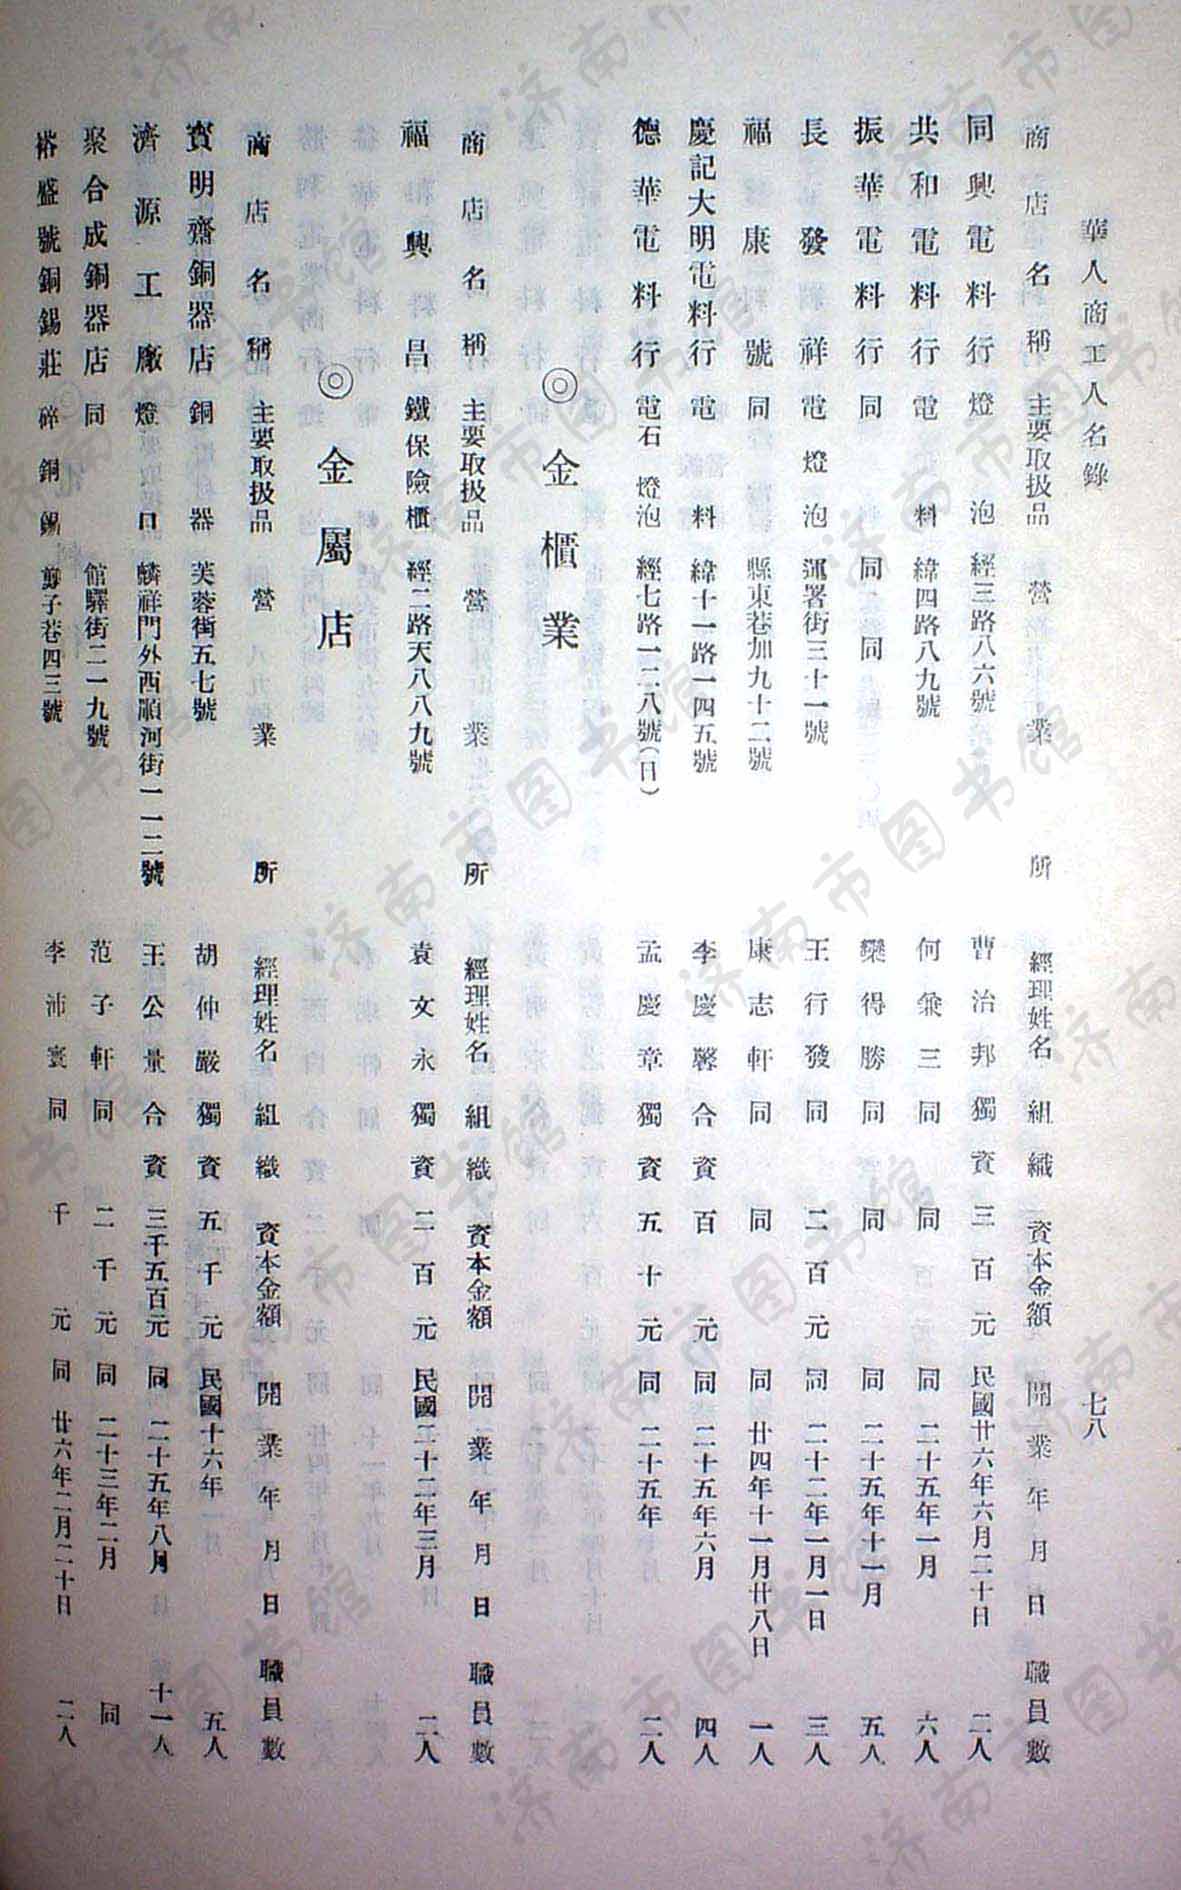 華人商工人名錄 七八
商店名稱 主要取扱品 營業所 經理姓名 組織 資本金額 開業年月日 職員數
同興電料行 燈泡 經三路八六號 曹治邦 獨資 三百元 民國廿六年六月二十日 二人
共和電料行 電料 緯四路八九號 何兼三 同 同 同二十五年一月 六人
振華電料行 同 同 同 欒得勝 同 同 同二十五年十一月 五人
長發祥 電燈泡 運署街三十一號 王行發 同 二百元 同二十二年一月一日 三人
福康號 同 縣東巷加九十二號 康志軒 同 同 同廿四年十一月廿八日 一人
慶記大明電料行 電料 緯十一路一四五號 李慶馨 合資 百元 同二十五年六月 四人
德華電料行 電石燈泡 經七路一二八號(日) 孟慶章 獨資 五十元 同二十五年 二人
◎金櫃業
商店名稱 主要取扱品 營業所 經理姓名 組織 資本金額 開業年月日 職員數
福興昌 鐵保險櫃 經二路天八八九號 袁文永 獨資 二百元 民國二十二年三月 二人
◎金屬店
商店名稱 主要取扱品 營業所 經理姓名 組織 資本金額 開業年月日 職員數
寶明齋銅器店 銅器 芙蓉街五七號 胡仲嚴 獨資 五千元 民國十六年 五人
濟源工廠 燈口 麟祥門外西順河街一一二號 王公量 合資 三千五百元 同二十五年八月 十一人
聚合成銅器店 同 館驛街二一九號 范子軒 同 二千元 同二十三年二月 同
裕盛號銅錫莊 碎銅錫 剪子巷四三號 李沛寰 同 千元 同廿六年二月二十日 二人
济南市图书馆